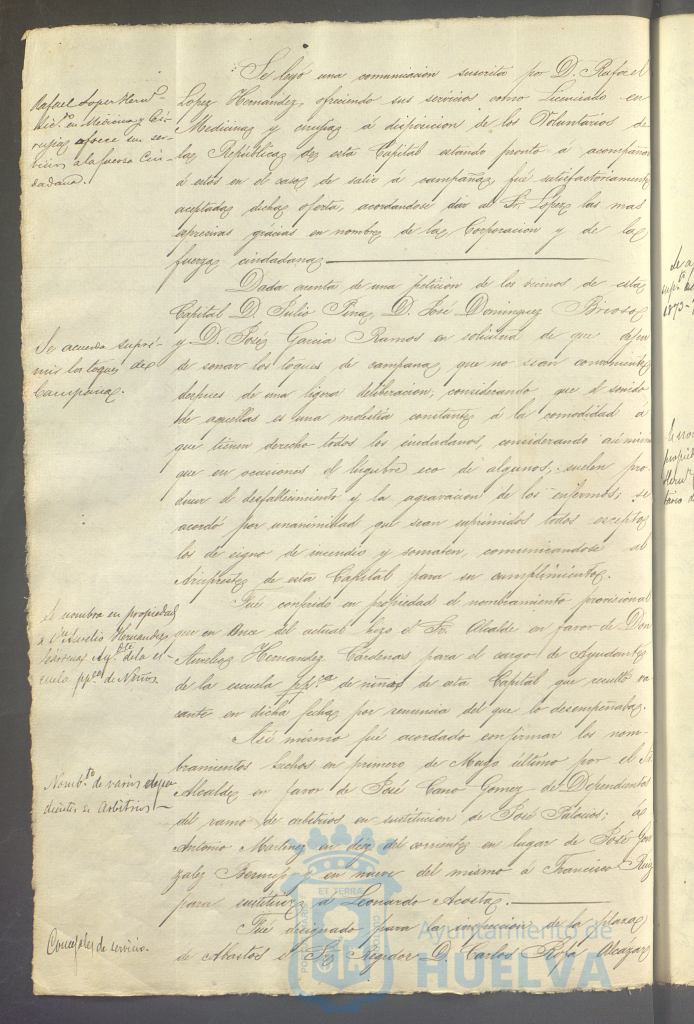 Se leyó una comunicación suscrita por D. Rafael
Lopez Hernandez, ofreciendo sus servicios como Licenciado en
Medicina y cirugia á disposicion de los Voluntarios de
la República de esta Capital estando pronto á acompañar
á estos en el caso de salir á campaña, fué satisfactoriamente
aceptada dicha oferta, acordandose dar al Sr. Lopez las mas
expresivas gracias en nombre de la Corporacion y de la
fuerza ciudadana
Dada cuenta de una peticion de los vecinos de esta
Capital D. Julio D. José Dominguez
y D. José Garcia Ramos en solicitud de que dejen
de sonar los toques de campana que no sean convenientes
despues de una ligera deliberacion, considerando que el sonido
de aquellas es una molestia constante á la comodidad á
que tienen derecho todos los ciudadanos, considerando asi mismo
que en ocasiones el lúgubre eco de algunos, suelen pro-
ducir el desfallecimiento y la agravacion de los enfermos; se
acordó por unanimidad que sean suprimidos todos excepto
los de signo de incendio y somaten, comunicandose al
Arcipreste de esta Capital para su cumplimiento.
Fué conferido en propiedad el nombramiento provisional
que en once del actual hizo el Sr. Alcalde en favor de Don
Aurelio Hernandez Cárdenas para el cargo de Ayudante
de la escuela pp.ca de niños de esta Capital que resultó va
cante en dicha fecha por renuncia del que lo desempeñaba.
Asi mismo fué acordado confirmar los nom-
bramientos hechos en primero de Mayo último por el Sr.
Alcalde en favor de José Cano Gomez de Dependiente
del ramo de arbitrios en sustitucion de José Palacios; á
Antonio Martinez en diez del corriente en lugar de José Gon
zalez en nueve del mismo á Francisco Ruiz
para sustituir á Leonardo Acosta.
Fué designado para la inspeccion de la plaza
de Abastos el Sr. Regidor D. Carlos Alcazar
Rafael Lopez Hern.
Lic.º en Medicina y Ci-
rugia ofrece su ser-
vicio á la fuerza Ciu-
dadana.
Se acuerda supri-
mir los toques de
Campana.
Se nombra en propiedad
á Dn Aurelio Hernandez
Cárdenas Ay.te de la es-
cuela pp.ca de Niños
Nomb.to de varios depen
dientes de Arbitrios
Concejales de servicio.
1873
Ayuntamiento de
HUELVA